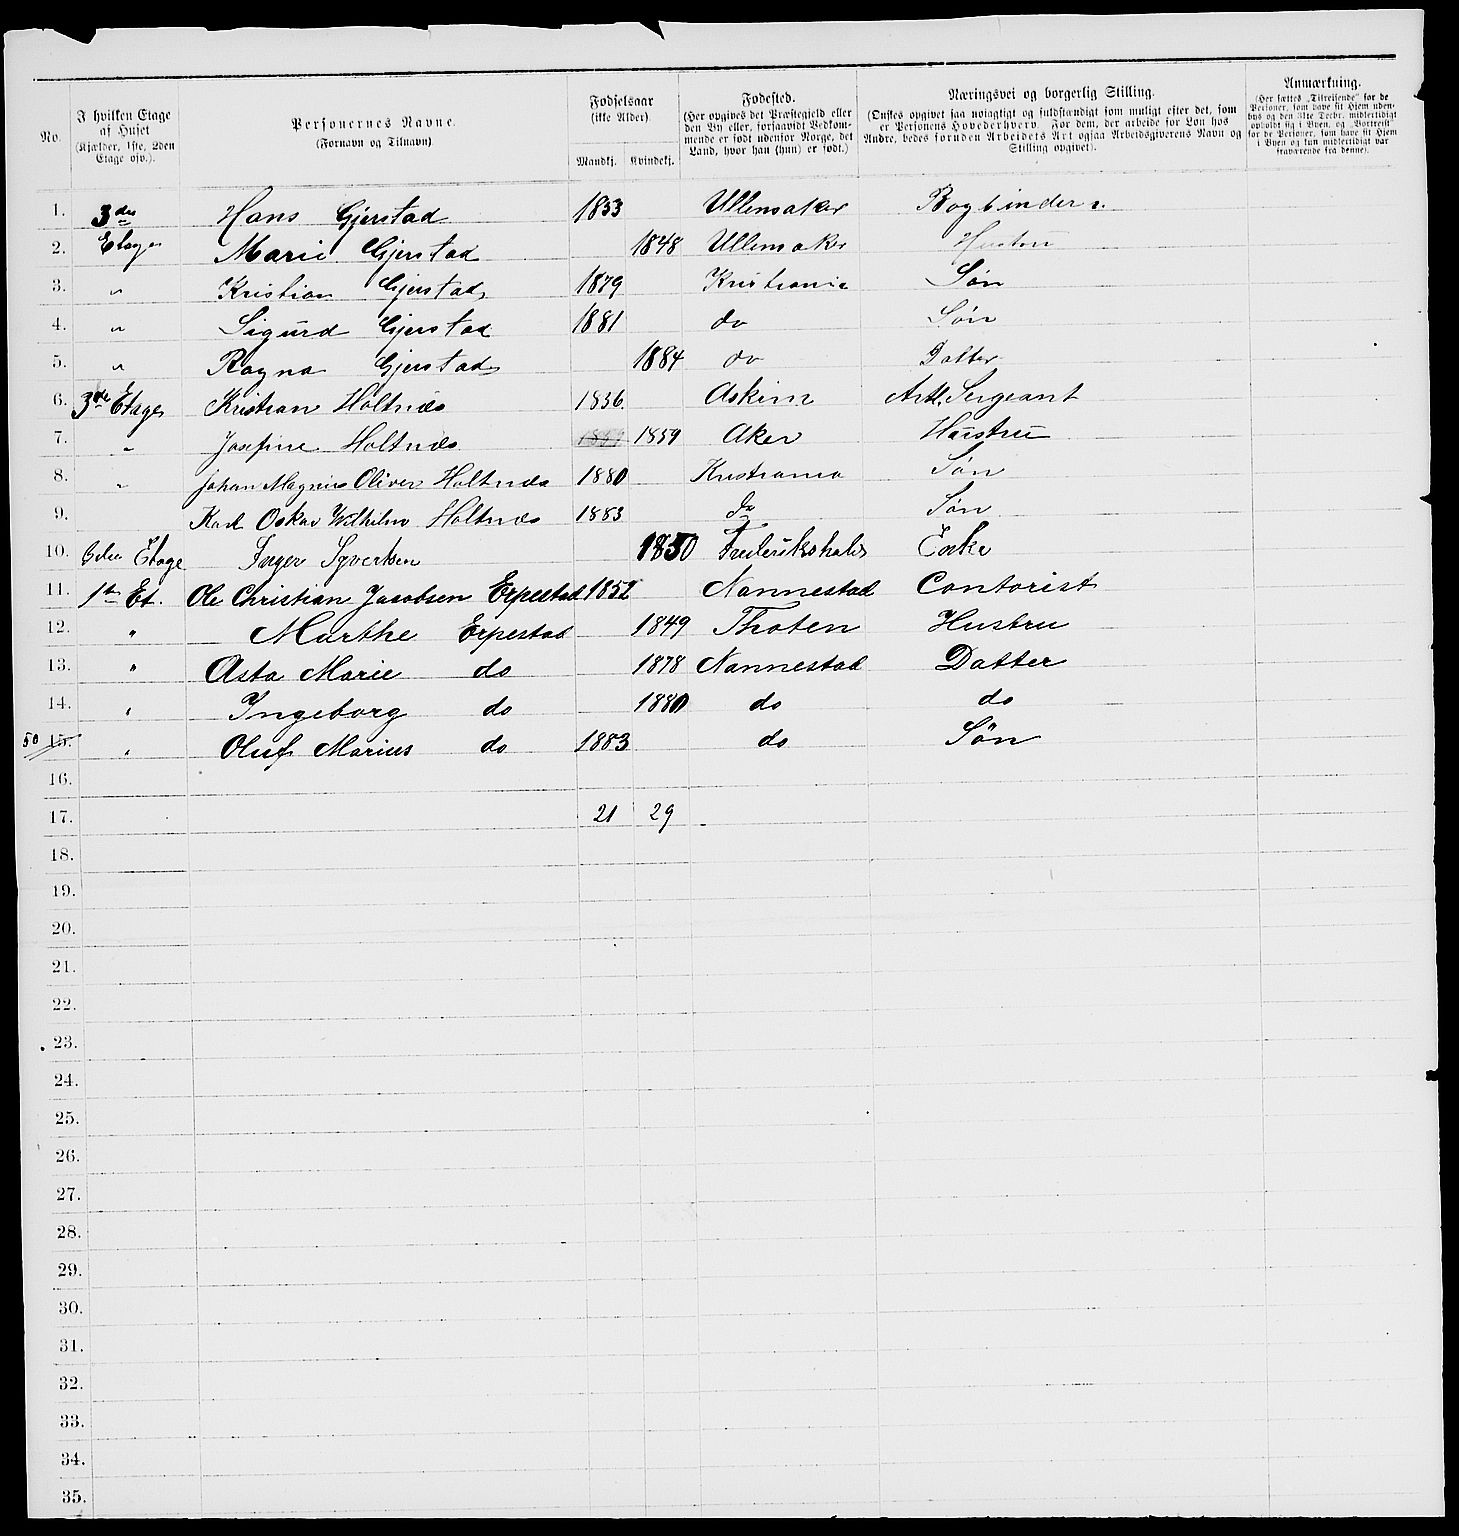 No.
I hvilken Etage af Huset (Kjælder, 1ste, 2den Etage osv.).
Personernes Navne. (Fornavn og Tilnavn).
Fødselsaar (ikke Alder).
Mandkj.
Kvindekj.
Fødested. (Her opgives det Præstegjeld eller den By eller, forsaavidt Vedkommende er født udenfor Norge, det Land, hvor han (hun) er født.)
Næringsvei og borgerlig Stilling. (Ønskes opgivet saa nøiagtigt og fuldstændigt som muligt efter det, som er Personens Hovederhverv. For dem, der arbeide for Løn hos Andre, bedes foruden Arbeidets Art ogsaa Arbeidsgiverens Navn og Stilling opgivet).
Anmærkning. (Her sættes „Tilreisende“ for de Personer, som have sit Hjem udenbys og den 31te Decbr. midlertidigt opholdt sig i Byen, og „Bortreist“ for de Personer, som have sit Hjem i Byen og kun midlertidigt var fraværende fra denne).
1. 3die Hans Gjerstad 1853 Ullensaker Bogbinder
2. Etage Marie Gjerstad 1848 Ullensaker Hustru
3. " Kristian Gjerstad 1879 Kristiania Søn
4. " Sigurd Gjerstad 1881 do Søn
5. " Ragna Gjerstad 1884 do Datter
6. 3de Etage Kristian Holtnæs 1856. Askim Artl. Sergeant
7. " Josefine Holtnæs 1859 1859 Aker Hustru
8. " Johan Magnus Oliver Holtnæs 1880 Kristiania Søn
9. Karl Oskar Wilhelm Holtnæs 1883 do Søn
10. Etage Inger Syvertsen 1850 Frederikshald Enke
11. 1ste Et. Ole Christian Jacobsen Erpestad 1852 Nannestad Contorist
12. " Marthe Erpestad 1849 Thoten Hustru
13. " Asta Marie do 1878 Nannestad Datter
14. " Ingeborg do 1880 do do
50 15. " Oluf Marius do 1883 do Søn
16.
17. 21 29
18.
19.
20.
21.
22.
23.
24.
25.
26.
27.
28.
29.
30.
31.
32.
33.
34.
35.